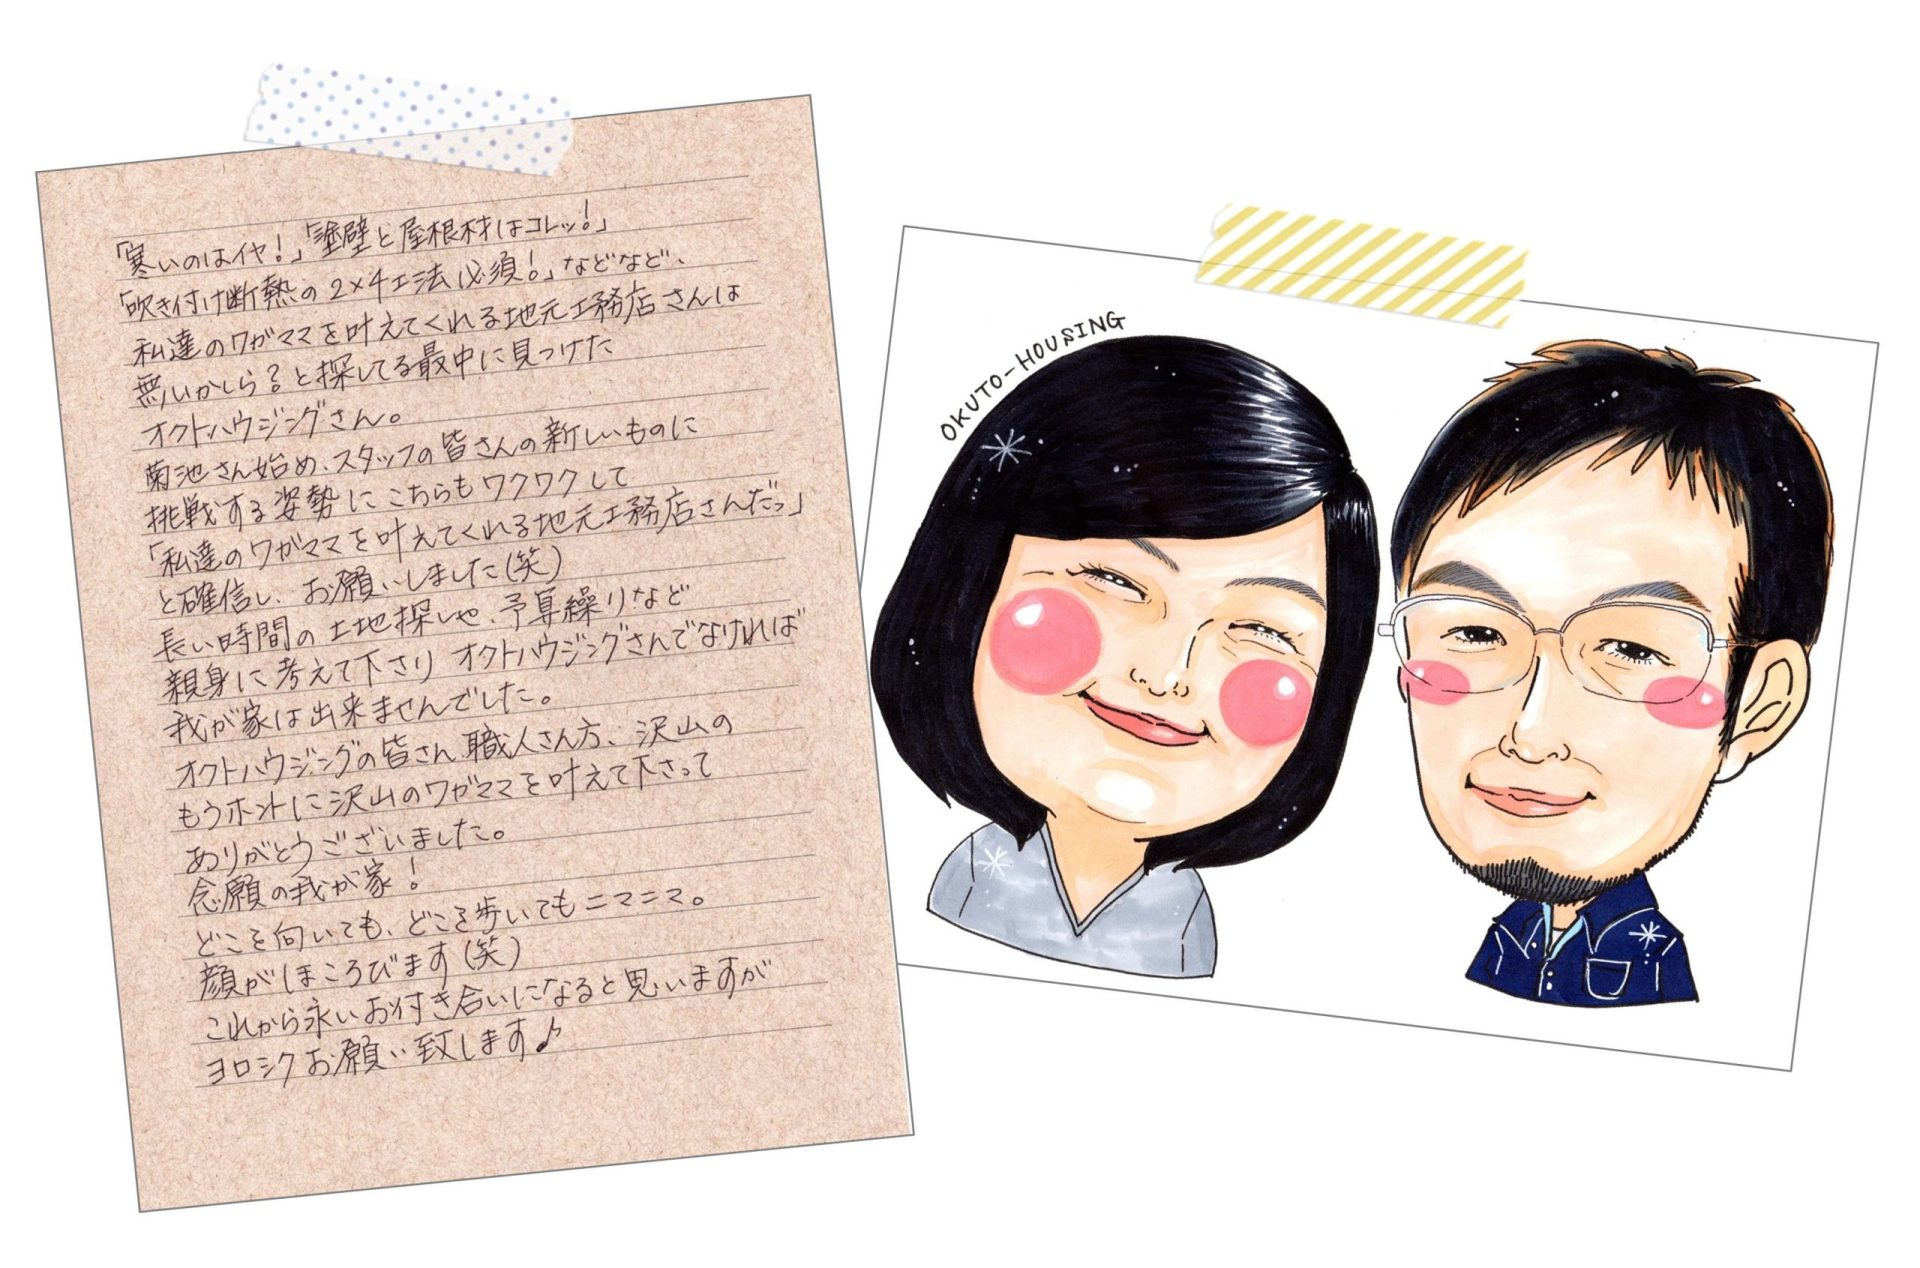 「寒いのはイヤ!」「塗壁と屋根材はコレッ!」
「吹き付け断熱の2×4工法必須!」などなど、
私達のワガママを叶えてくれる地元工務店さんは
無いかしら?と探してる最中に見つけた
オクトハウジングさん。
菊池さん始め、スタッフの皆さんの新しいものに
挑戦する姿勢にこちらもワクワクして
「私達のワガママを叶えてくれる地元工務店さんだっ」
と確信し、お願いしました(笑)
長い時間の土地探しや、予算繰りなど
親身に考えて下さりオクトハウジングさんでなければ
我が家は出来ませんでした。
オクトハウジングの皆さん、職人さん方、沢山の
もうホントに沢山のワガママを叶えて下さって
ありがとうございました。
念願の我が家!
どこを向いても、どこを歩いてもニマニマ。
顔がほころびます(笑)
これから永いお付き合いになると思いますが
ヨロシクお願い致します♪
OKUTO-HOUSING